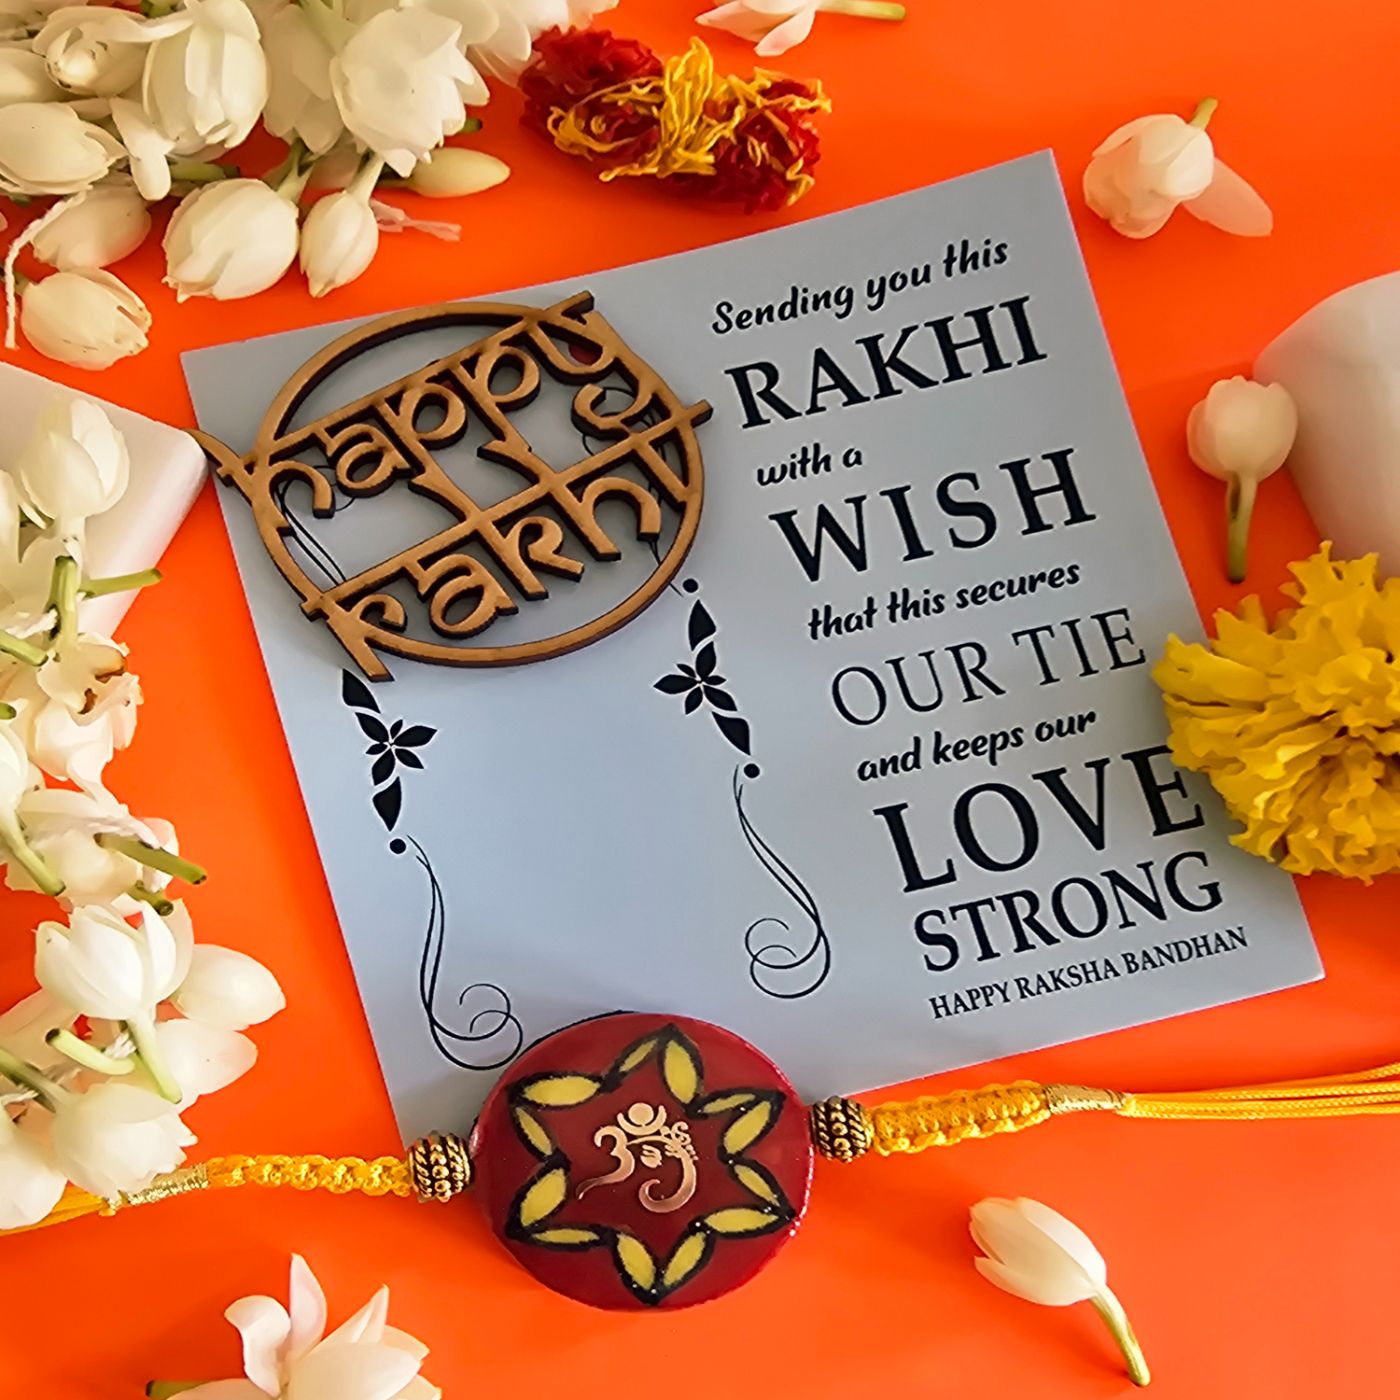 happy
rakhi
Sending you this
RAKHI
with a
WISH
that this secures
OUR TIE
and keeps our
LOVE
STRONG
HAPPY RAKSHA BANDHAN